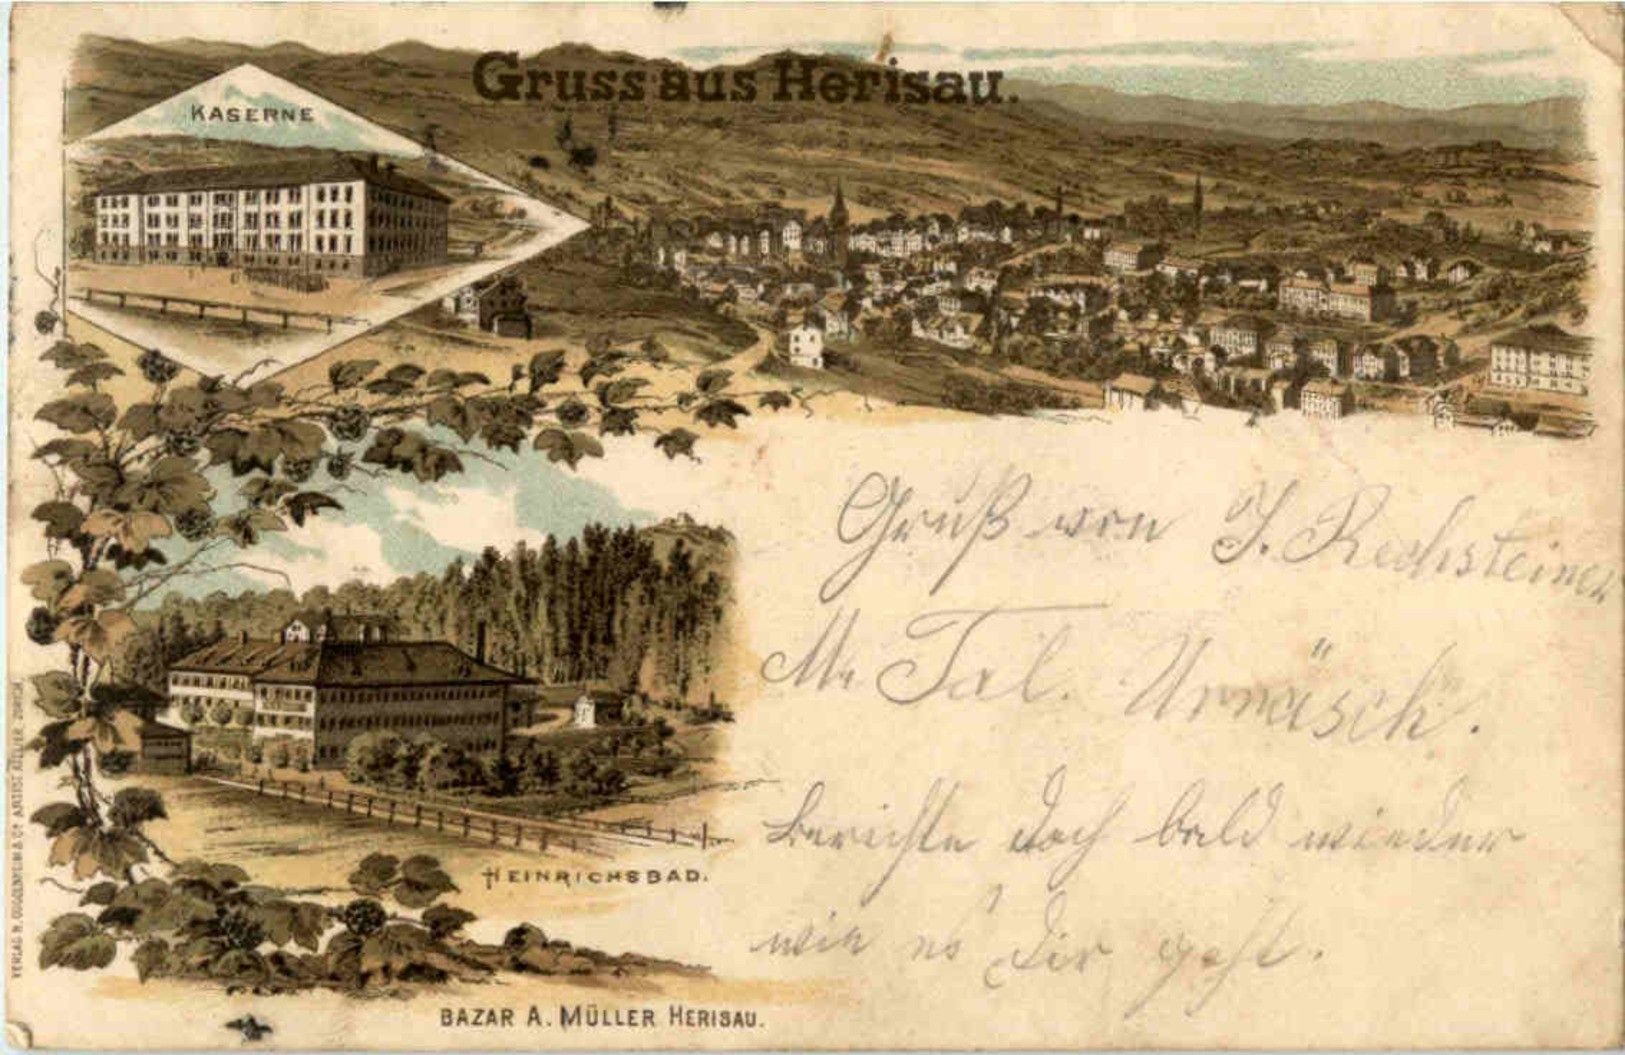 Gruss aus Herisau.
KASERNE
Gruß von J. Rechsteiner
M. Tal. Urnäsch.
berichte doch bald wieder
wie es Dir geht.
HEINRICHSBAD.
VERLAG H. GUGGENHEIM & Co ARTIST. ATELIER ZÜRICH
BAZAR A. MÜLLER HERISAU.